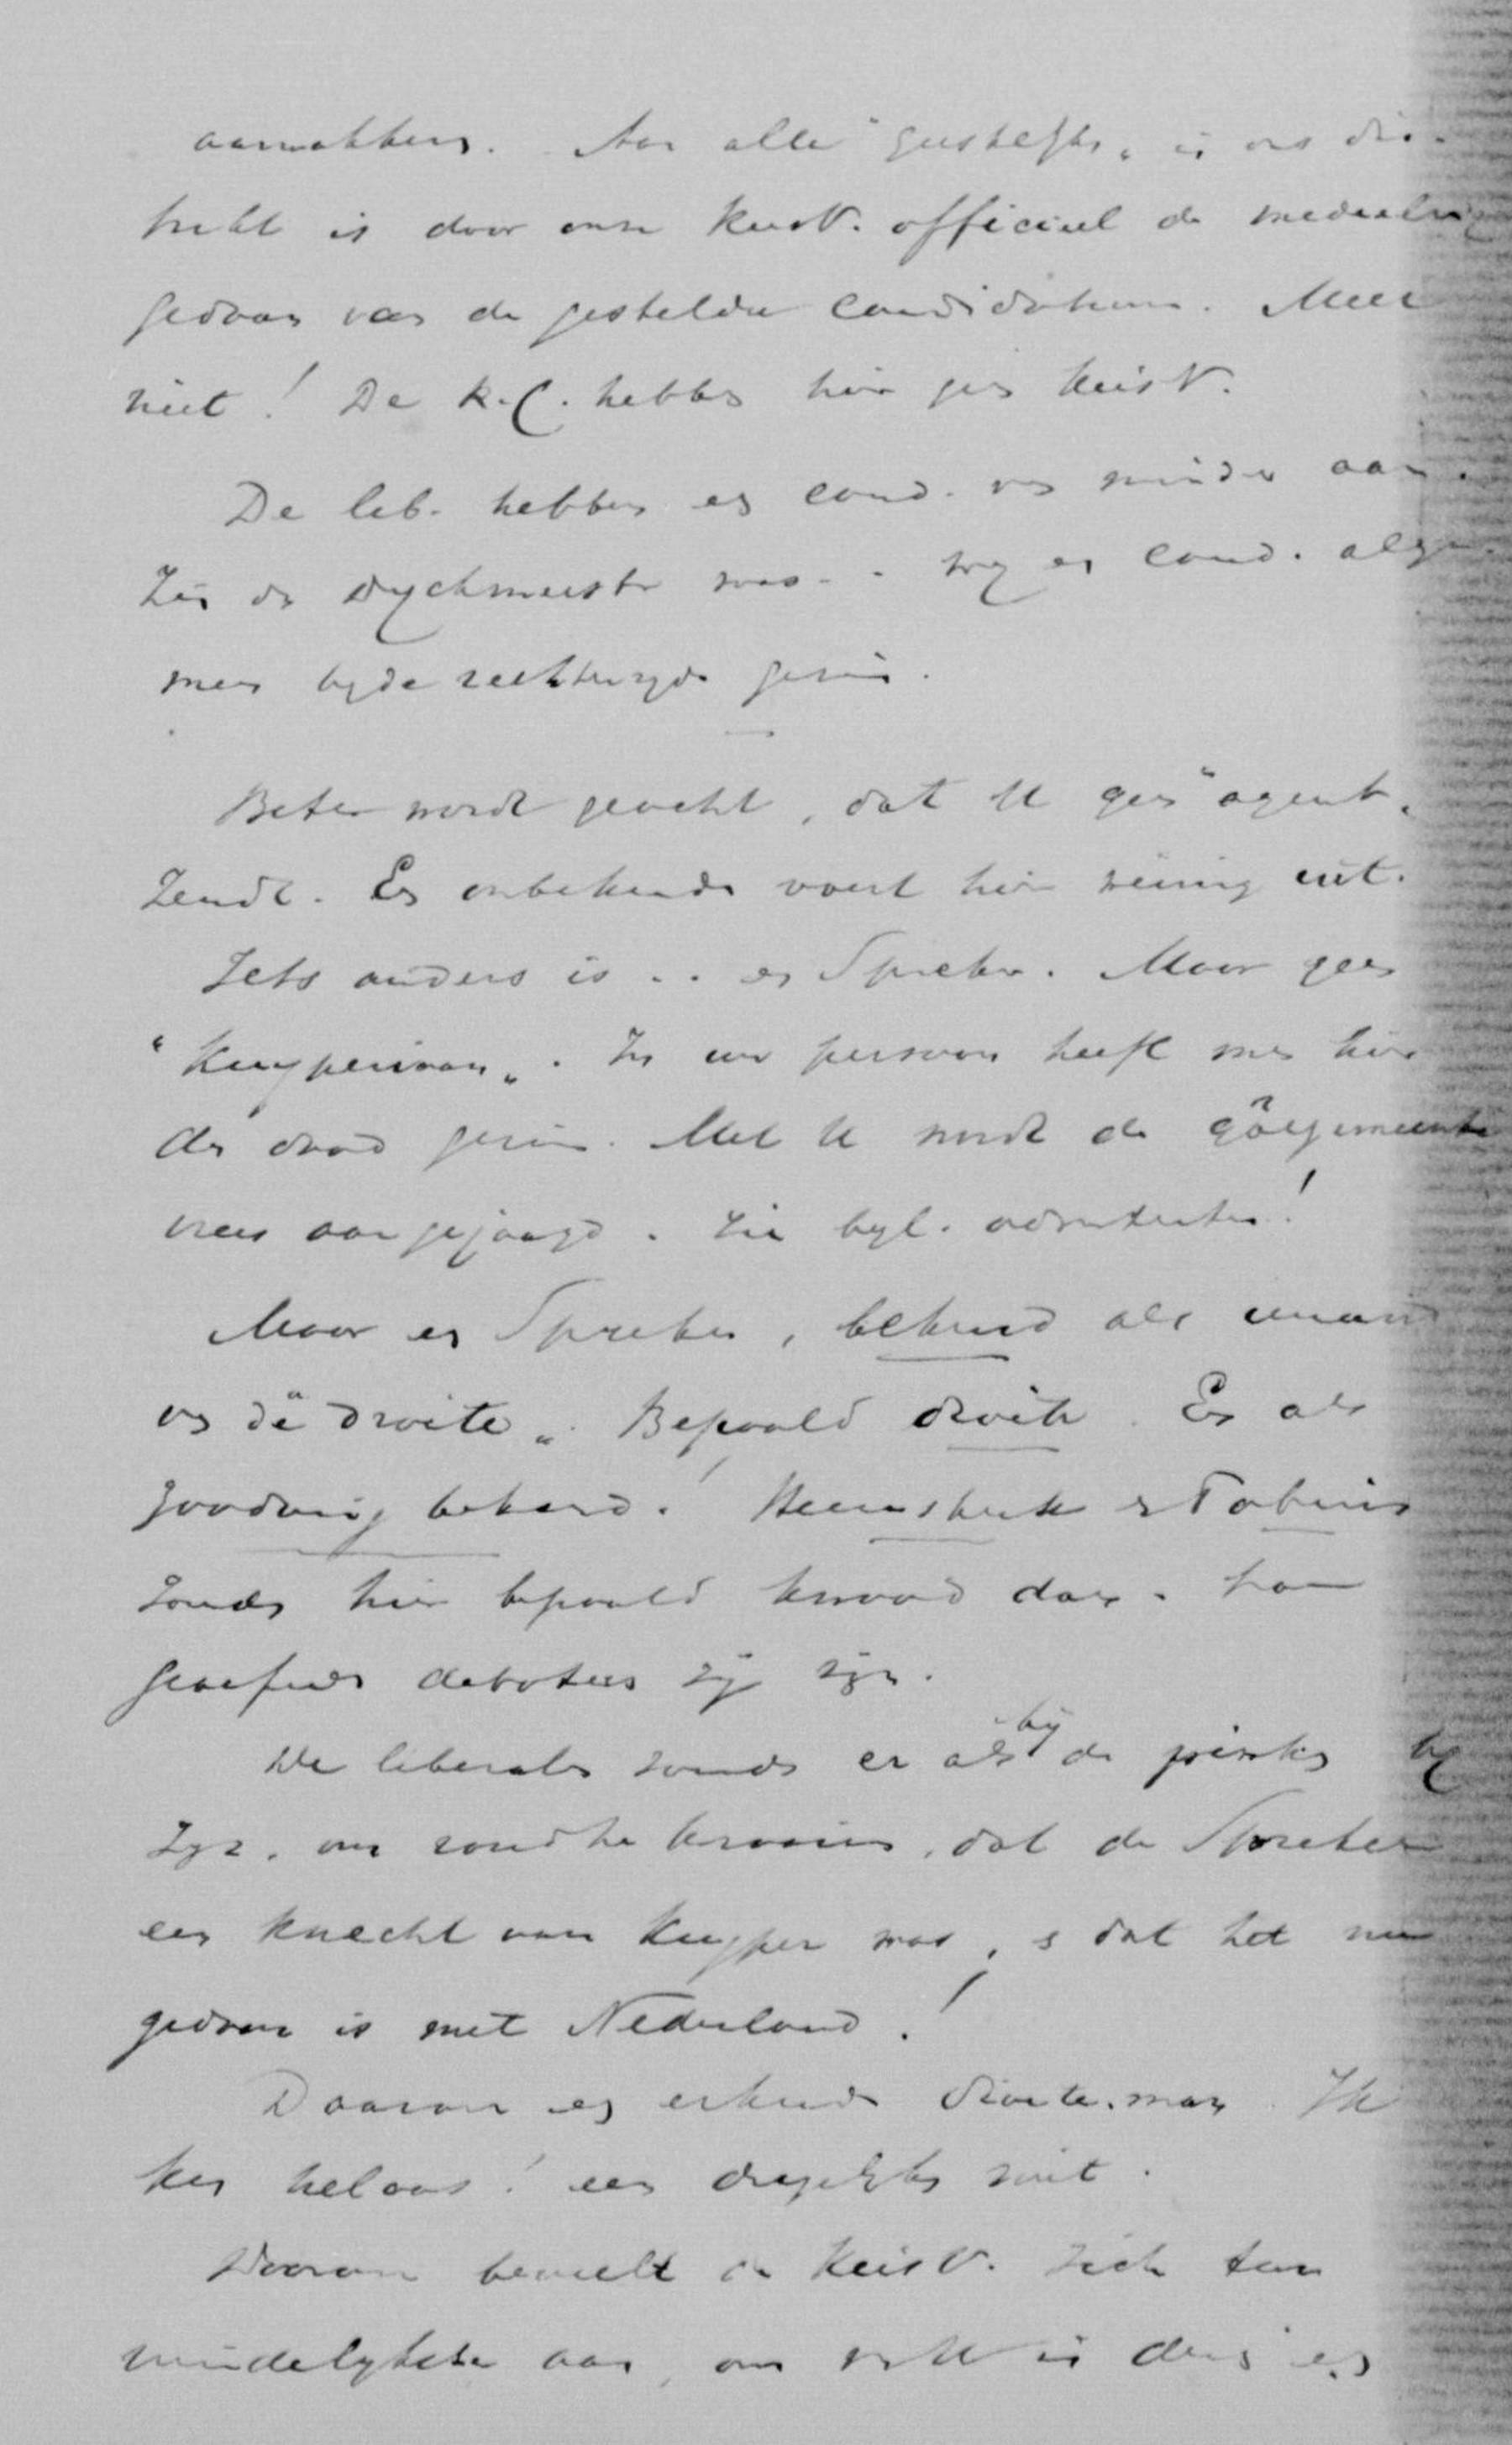 aanwakkeren. Aan alle "geestelijken" in ons dis-
trikt is door onze Kiesv. officieel de mededeeling
gedaan van de gestelde candidaturen. Meer
niet! De R.C. hebben hier geen Kiesv.
De lib. hebben een cand. van minder aan-
zien dan Dyckmeester was. Wij een cand. alge-
meen byde rechterzyde gezien.
Beter wordt geacht, dat U geen "agent"
zendt. Een onbekende voert hier weinig uit.
Iets anders is .. een Spreker. Maar geen
"Kuyperiaan". In uw persoon heeft men hier
den dood gezien. Met U wordt de gôegemeente
vrees aangejaagd. Zie byl. advertentie!
Maar een Spreker, bekend als iemand
van de "droite". Bepaald droite. En als
zoodanig bekend! Heemskerk en Fabius
zouden hier bepaald kwaad doen. Hoe
geachte debaters zij zijn.
De liberalen zouden er als bij de pinken by
zyn, om rond te bazuinen, dat de Spreker
een knecht van Kuyper was, & dat het nu
gedaan is met Nederland!
Daarom een erkende droite-man. Ik
ken helaas! een dergelyken niet.
Daarom beveelt de Kiesv. zich ten
vriendelykste aan, om een